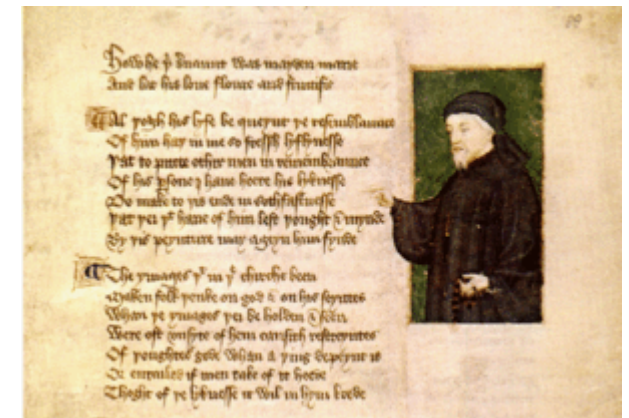 How he þi ẜuaunt was mayden marie
And lat his loue floure and fructifie
Al þogh his lyfe be queynt þe resemblaunce
Of him haþ in me so fressh lyflynesse
Þat to putte othir men in remembraunce
Of his ꝑsone I haue heere his lyknesse
Do make to þis ende in sothfastnesse
Þat þei þᵗ haue of him left þought & mynde
By þis peynture may ageyn him fynde
The ymages þᵗ in þᵉ chirche been
Maken folk þenke on god & on his seyntes
Whan þe ymages þei be holden & seen
Were oft vnsyte of hem causith restreyntes
Of þoughtes gode whan a þing depeynt is
Or entailed if men take of it heede
Thoght of þe lyknesse it wil in hym brede